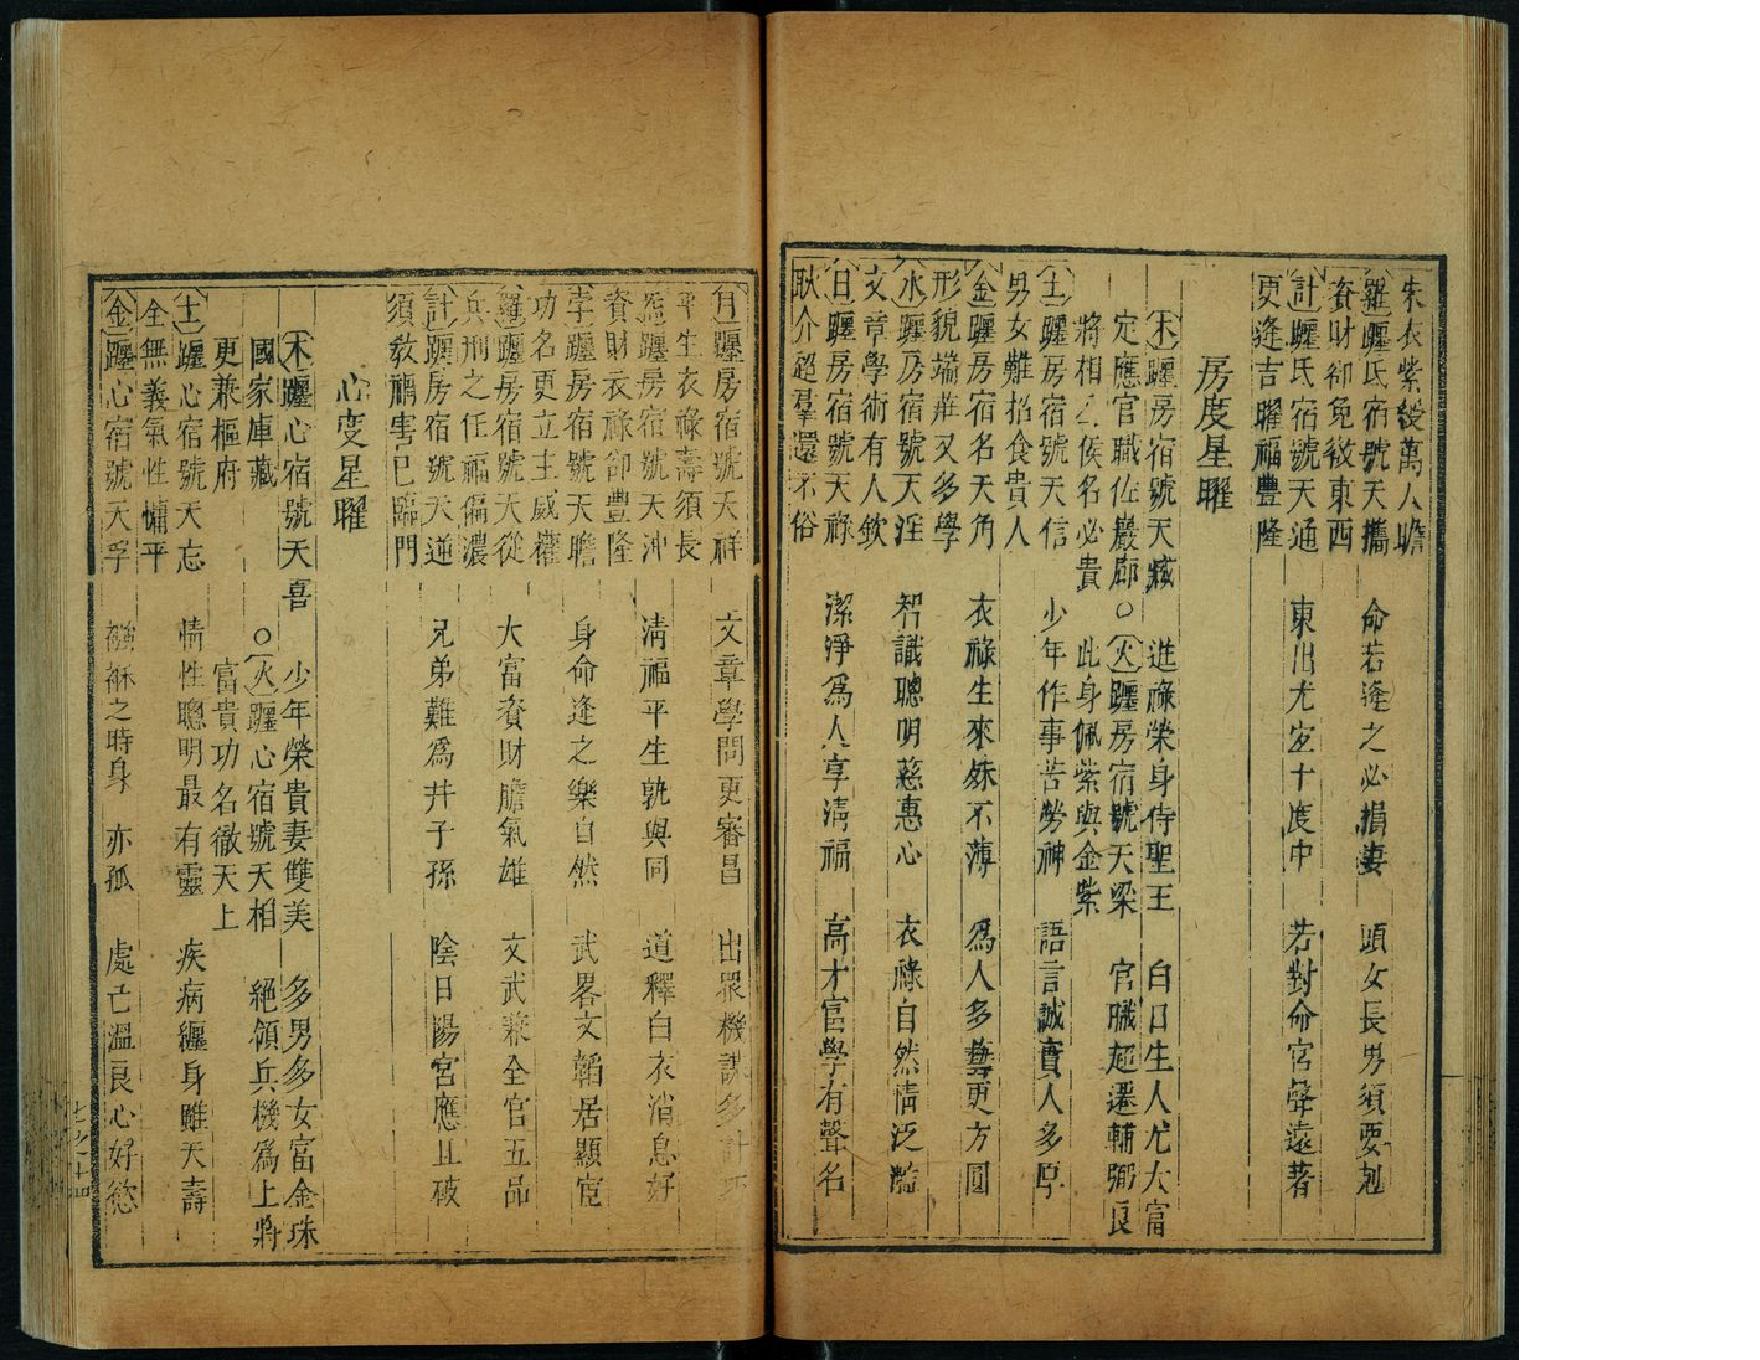 朱衣紫綬萬人瞻
羅躔氐宿號天攜　命若逢之必損妻　頭女長男須要剋
資財卻免敎東西
計躔氐宿號天通　東出尤宜十度中　若對命宮聲遠著
更逢吉曜福豐隆
房度星曜
木躔房宿號天　進祿榮身侍聖王　白日生人尤大富
定應官職佐巖廊○火躔房宿號天梁　官職超遷輔弼良
將相　侯名必貴　此身佩紫與金紫
土躔房宿號天信　少年作事苦勞神　語言誠實人多厚
男女難招食貴人
金躔房宿名天角　衣祿生來殊不薄　爲人多藝更方圓
形貌端莊又多學
水躔房宿號天淫　智識聰明慈惠心　衣祿自然情泛
文章學術有人欽
日躔房宿號天祿　潔淨爲人享淸福　高才官學有聲名
耿介超羣還不俗
月躔房宿號天祥　文章學問更審昌　出眾機謀多計
平生衣祿壽須長
炁躔房宿號天沖　淸福平生孰與同　道釋白衣消息好
資財衣祿卻豐隆
孛躔房宿號天瞻　身命逢之樂自然　武畧文韜居顯宦
功名更立主威權
羅躔房宿號天從　大富資財膽氣雄　文武兼全官五品
兵刑之任福偏濃
計躔房宿號天逆　兄弟難爲幷子孫　陰日陽宮應且破
須敎禍害已臨門
心度星曜
木躔心宿號天喜　少年榮貴妻雙美　多男多女富金珠
國家庫藏　○火躔心宿號天相　絕領兵機爲上將
更兼樞府　富貴功名徹天上
土躔心宿號天忘　情性聰明最有靈　疾病纏身雖夭壽
全無義氣性慵平
金躔心宿號天孚　之時身亦孤　處亡溫良心好慾
七之十四